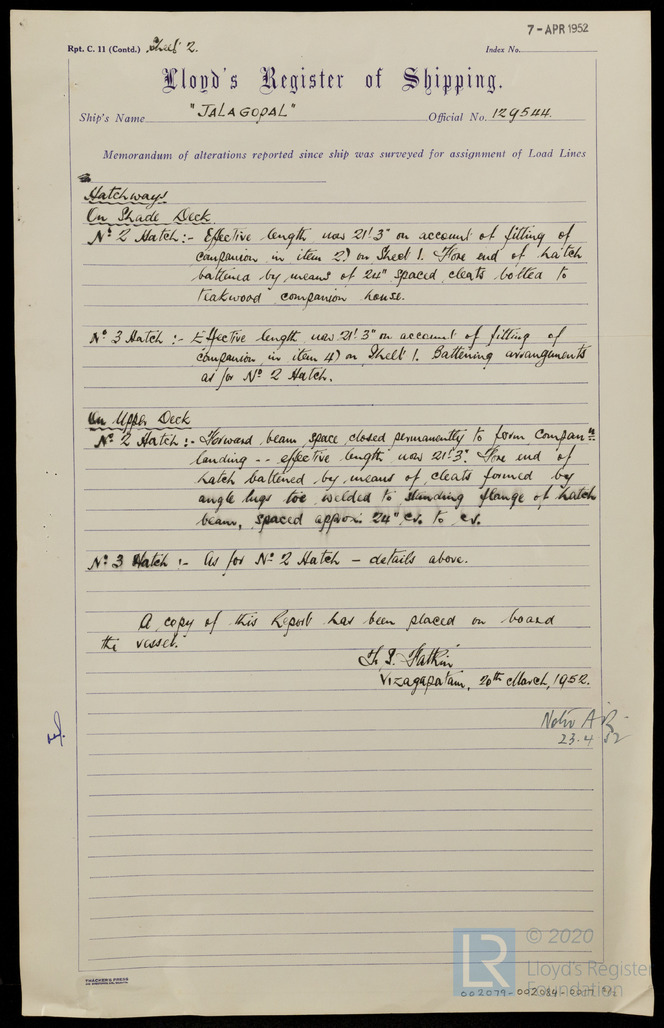 7-APR 1952
Rpt. C. 11 (Contd.) Sheet 2.
Index No.
Lloyd's Register of Shipping.
Ship's Name "JALAGOPAL" Official No. 129544.
Memorandum of alterations reported since ship was surveyed for assignment of Load Lines
Hatchways
On Shade Deck
Nº 2 Hatch :- Effective length now 21' 3" on account of fitting of
companion in item 2) on Sheet 1. Fore end of hatch
battened by means of 24" spaced cleats bolted to
teakwood companion house.
Nº 3 Hatch :- Effective length now 21' 3" on account of fitting of
companion in item 4) on Sheet 1. Battening arrangements
as for Nº 2 Hatch.
On Upper Deck
Nº 2 Hatch :- Forward beam space closed permanently to form compan"n
landing -- effective length now 21' 3". Fore end of
hatch battened by means of cleats formed by
angle lugs toe welded to standing flange of hatch
beam, spaced approx. 24" cr. to cr.
Nº 3 Hatch :- As for Nº 2 Hatch - details above.
A copy of this Report has been placed on board
the vessel.
Vizagapatam, 20th March, 1952.
23.4.52
THACKER'S PRESS
© 2020
LR
Lloyd's Register
Foundation
002079-002084-0017 2/2